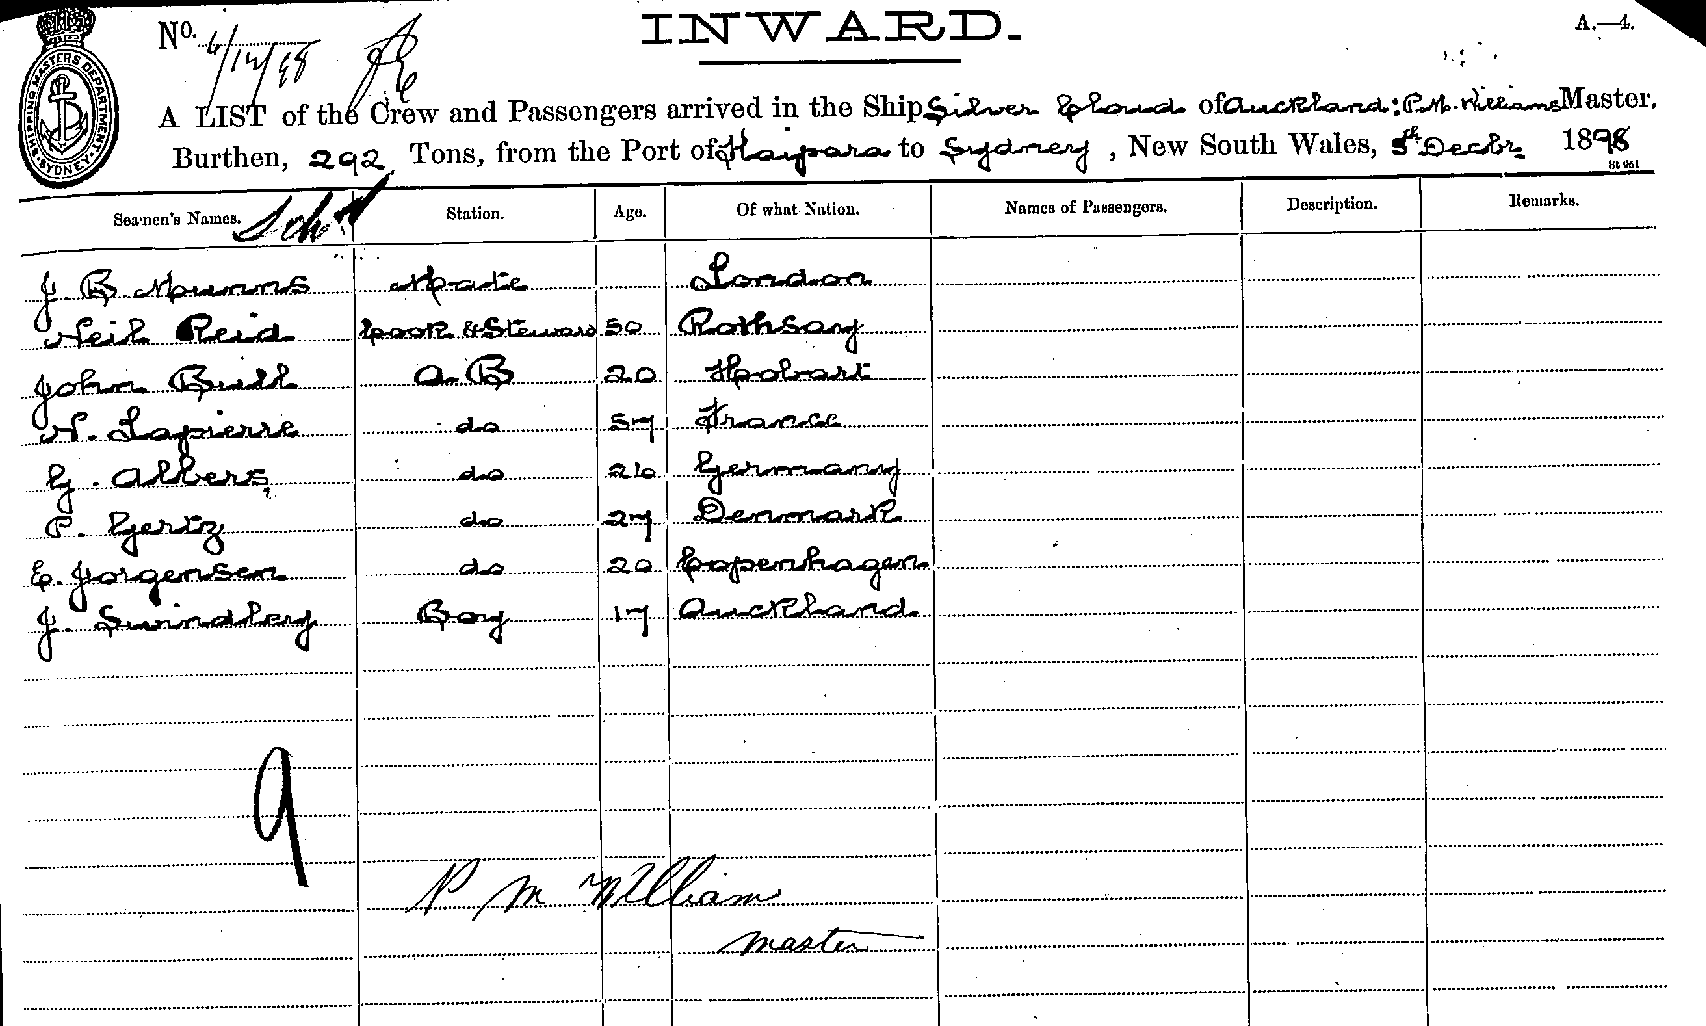 SHIPPING MASTERS DEPARTMENT SYDNEY
No. 6/12/98
INWARD.
A.—4.
A LIST of the Crew and Passengers arrived in the Ship Silver Cloud of Auckland: P.M. Williams Master.
Burthen, 292 Tons, from the Port of Kaipara to Sydney, New South Wales, 5th Decbr. 1898
Seamen's Names. Station. Age. Of what Nation. Names of Passengers. Description. Remarks.
J. B. Munns Mate London
Neil Reid Cook & Steward 50 Rothsay
John Bull A.B 20 Hobart
N. Lapierre do 57 France
G. Albers, do 26 Germany
P. Gertz do 27 Denmark
E. Jorgensen do 20 Copenhagen
J. Swindley Boy 17 Auckland
9
P M William
Master